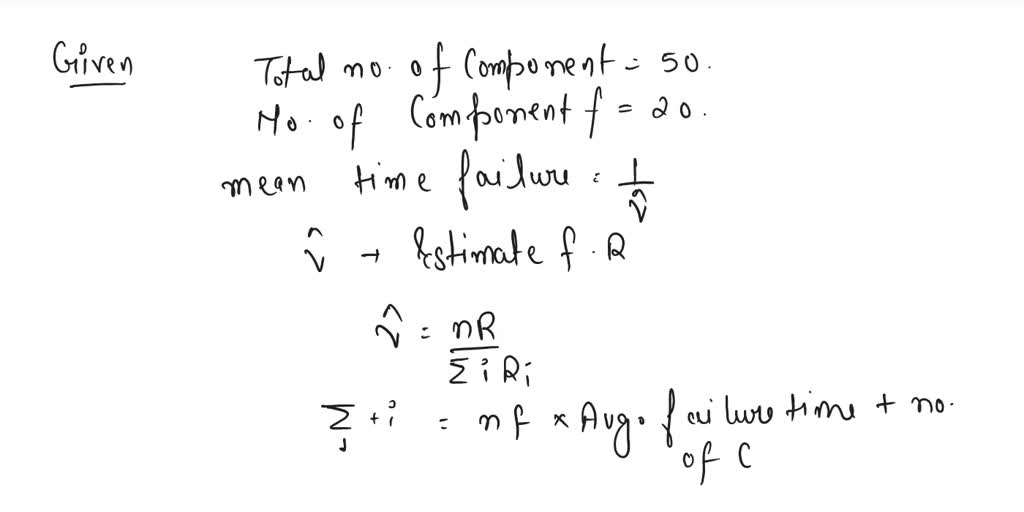 Given Total no. of Component = 50.
No. of Component f = 20.
mean time failure = 1/v̂
v̂ → Estimate f. R
v̂ = nR / Σ i Ri
Σ ti = nf × Avg. failure time + no.
of C